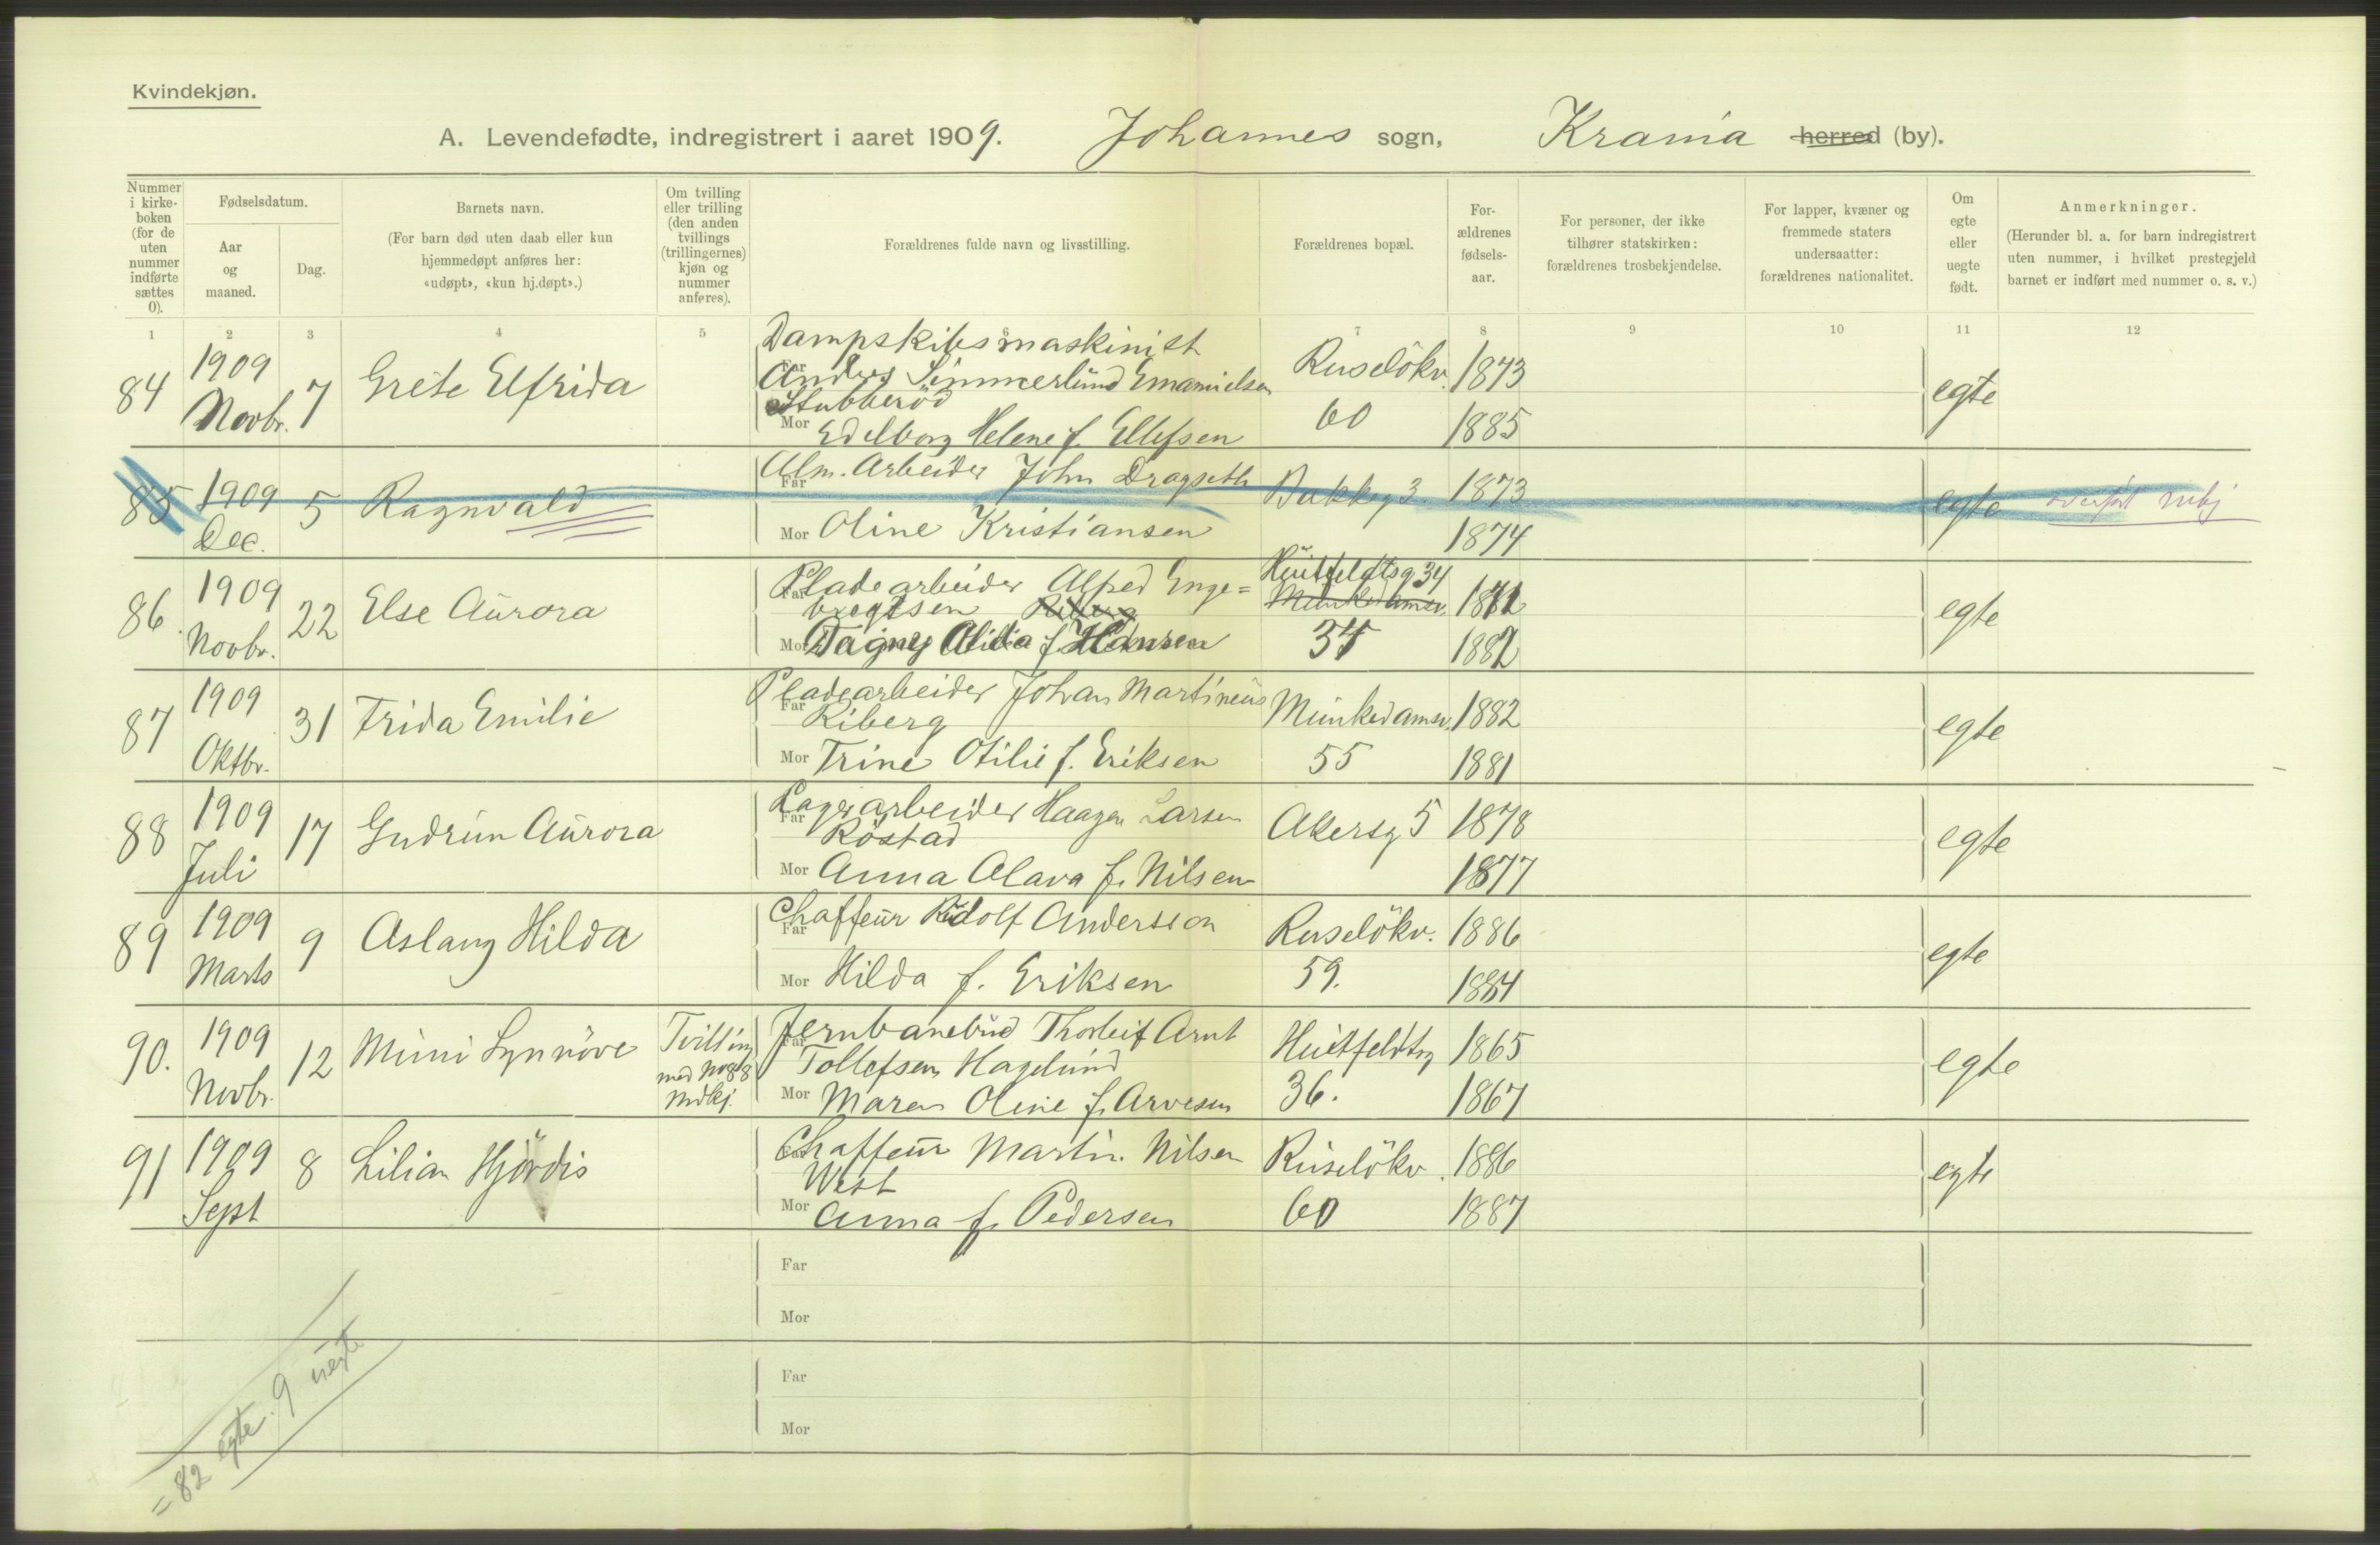 Kvindekjøn.
A. Levendefødte, indregistrert i aaret 1909. Johannes sogn, Krania herred (by).
Nummer i kirke-boken (for de uten nummer indførte sættes 0).
Fødselsdatum.
Aar og maaned.
Dag.
Barnets navn.
(For barn død uten daab eller kun hjemmedøpt anføres her: «udøpt», «kun hj.døpt».)
Om tvilling eller trilling (den anden tvillings (trillingernes) kjøn og nummer anføres).
Forældrenes fulde navn og livsstilling.
Forældrenes bopæl.
For-ældrenes fødsels-aar.
For personer, der ikke tilhører statskirken: forældrenes trosbekjendelse.
For lapper, kvæner og fremmede staters undersaatter: forældrenes nationalitet.
Om egte eller uegte født.
Anmerkninger.
(Herunder bl. a. for barn indregistrert uten nummer, i hvilket prestegjeld barnet er indført med nummer o. s. v.)
1 2 3 4 5 6 7 8 9 10 11 12
84 1909 Novbr. 7 Grete Elfrida
Dampskibsmaskinist
Far Anders Simmerlund Emanuelsen
Stubberöd
Mor Edelborg Helene f. Ellefsen
Ruselökv. 60
1873
1885
egte
85 1909 Dec. 5 Ragnvald
Far Alm. Arbeider John Dragseth
Mor Oline Kristiansen
Bakkeg 3.
1873
1874
egte
86. 1909 Novbr. 22 Else Aurora
Far Pladearbeider Alfred Enge=
bregtsen Riberg
Mor Dagny Alida f. Hansen
Huitfeldtsg 34
Munkedamsv.
34
1882
egte
87 1909 Oktbr. 31 Frida Emilie
Far Pladearbeider Johan Martineus
Riberg
Mor Trine Otilie f. Eriksen
Munkedamsv. 55
1882
1881
egte
88 1909 Juli 17 Gudrun Aurora
Far Lagerarbeider Haagen Larsen
Röstad
Mor Anna Alava f. Nilsen
Akersg 5
1878
1877
egte
89 1909 Marts 9 Aslaug Hilda
Far Chaffeur Rudolf Andersson
Mor Hilda f. Eriksen
Ruselökv. 59.
1886
1884
egte
90. 1909 Novbr. 12 Mimi Synnöve
Tvilling
med No 88
mdkj.
Far Jernbanebud Thorleif Arnt
Tollefsen Hagelund
Mor Maren Oline f. Arvesen
Huitfeldtsg 36.
1865
1867
egte
91 1909 Sept 8 Lilian Hjördis
Far Chaffeur Martin Nilsen
West
Mor Anna f. Pedersen
Ruselökv. 60
1886
1887
egte
Far
Mor
Far
Mor
= 82 egte. 9 uegte